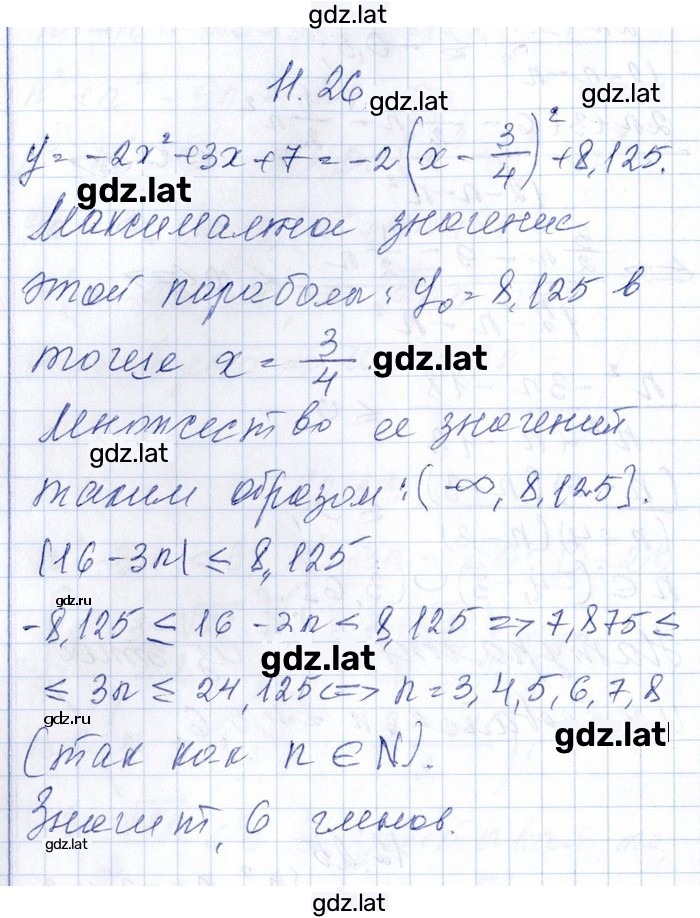 gdz.lat
11.26
gdz.lat
gdz.lat
y = -2x² + 3x + 7 = -2(x - 3/4)² + 8,125.
gdz.lat
Максимальное значение
этой параболы: y₀ = 8,125 в
точке x = 3/4.
gdz.lat
Множество ее значений
gdz.lat
таким образом: (-∞, 8,125].
|16 - 3n| ≤ 8,125
gdz.ru
-8,125 ≤ 16 - 2n ≤ 8,125 => 7,875 ≤
gdz.lat
≤ 3n ≤ 24,125 <=> n = 3, 4, 5, 6, 7, 8
gdz.ru
gdz.lat
(так как n ∈ N).
Значит, 6 членов.
gdz.lat
gdz.lat